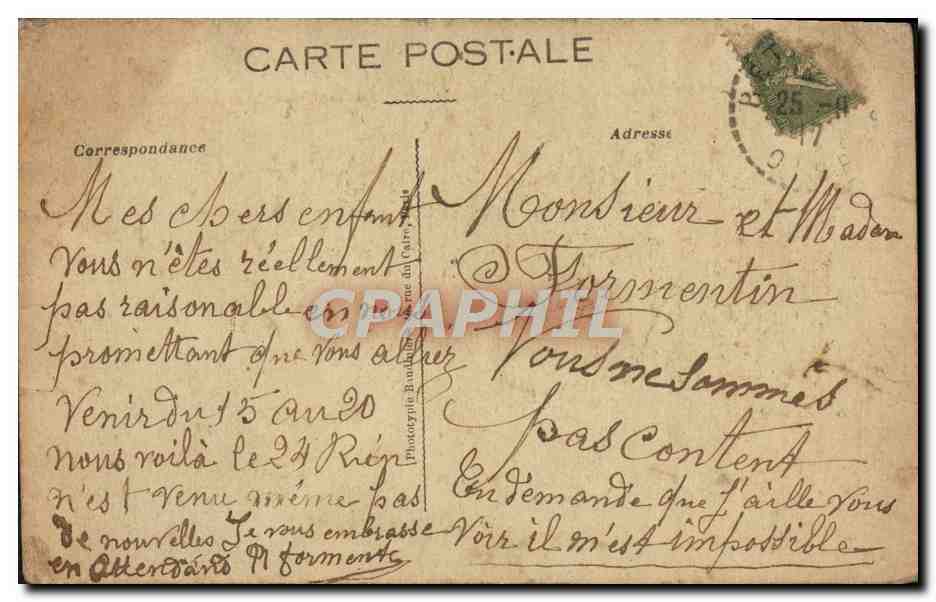 CARTE POSTALE
Correspondance
Adresse
25 -9
17
Mes chers enfant
vous n'êtes réellement
pas raisonable en nous
promettant que vous alliez
Venir du 15 au 20
nous voilà le 24 Rien
n'est venu même pas
de nouvelles Je vous embrasse
en Attendand
Monsieur et Madam
Formentin
Nous ne sommes
pas content
En demande que J'aille vous
Voir il m'est impossible
Phototypie Baudinière rue du Caire, Paris
CPAPHIL